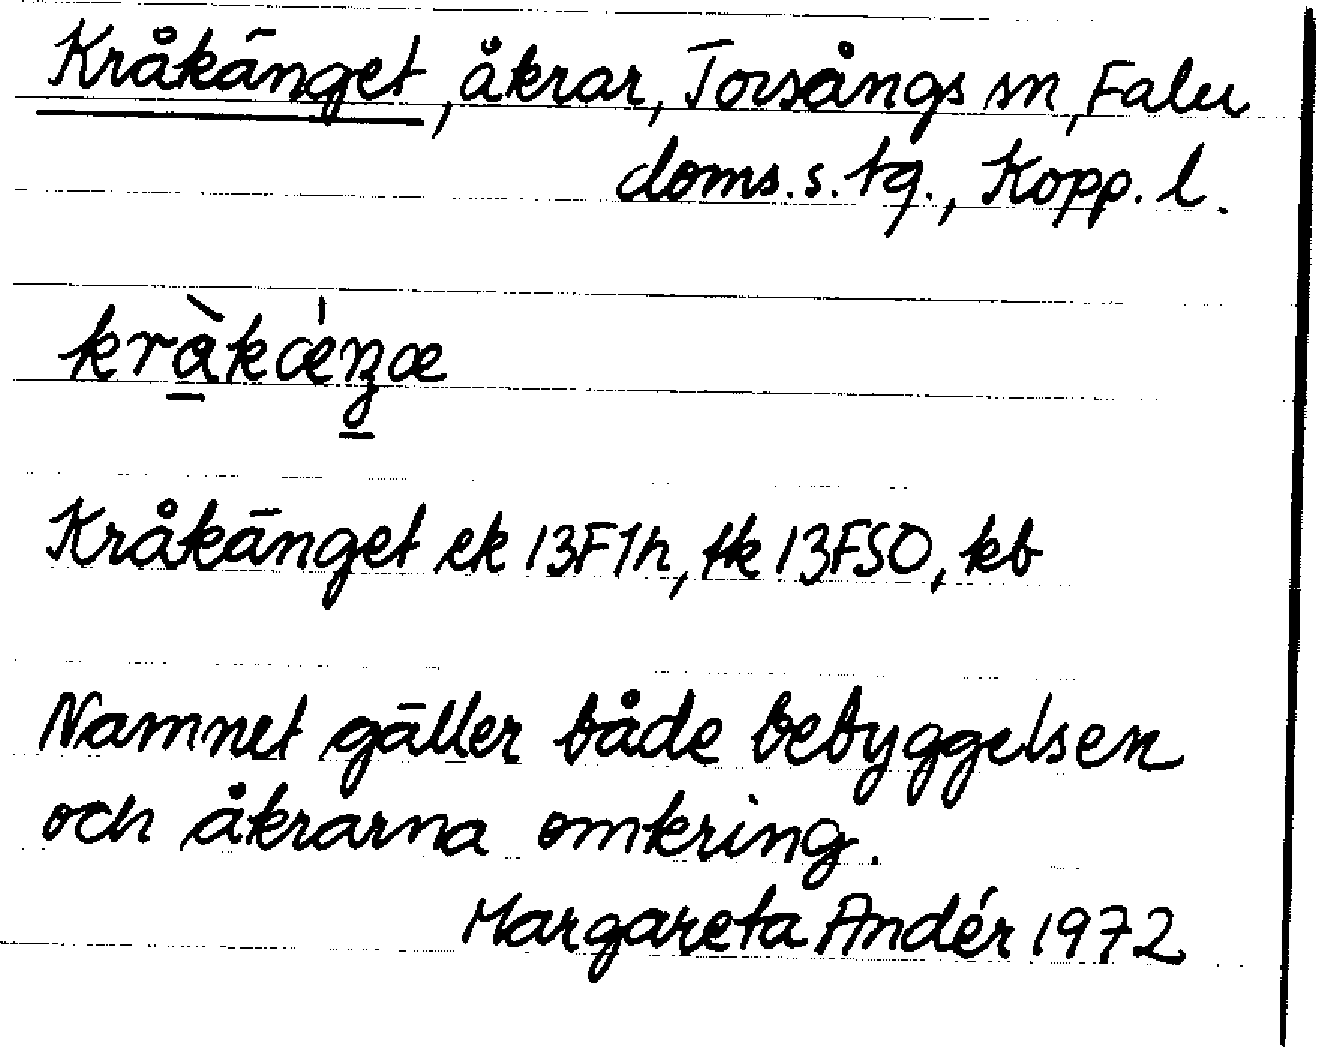 Kråkänget, åkrar, Torsångs sn, Falu
doms.s. tg., Kopp. l.
kràkǽŋæ
Kråkänget ek 13F1h, tk 13FSO, kb
Namnet gäller både bebyggelsen
och åkrarna omkring.
Margareta Andér 1972